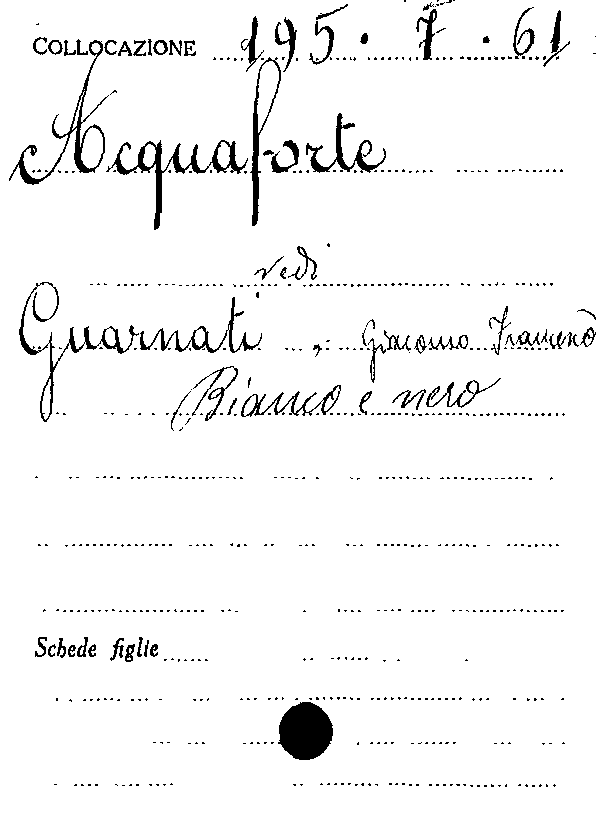 COLLOCAZIONE 195 . 7 . 61
Acquaforte
vedi
Guarnati , Giacomo
Bianco e nero
Schede figlie